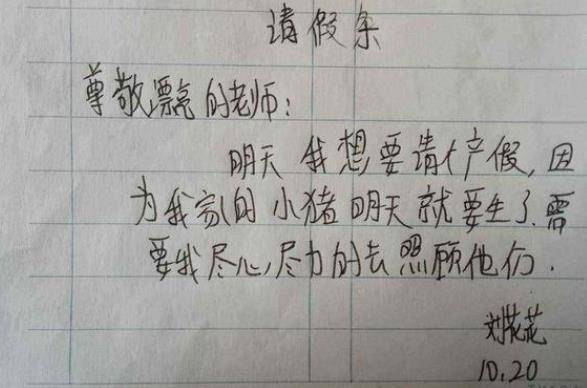 请假条
尊敬漂亮的老师：
明天 我想要请个产假，因
为我家的小猪明天就要生了.需
要我尽心尽力的去照顾他们.
刘花花
10.20